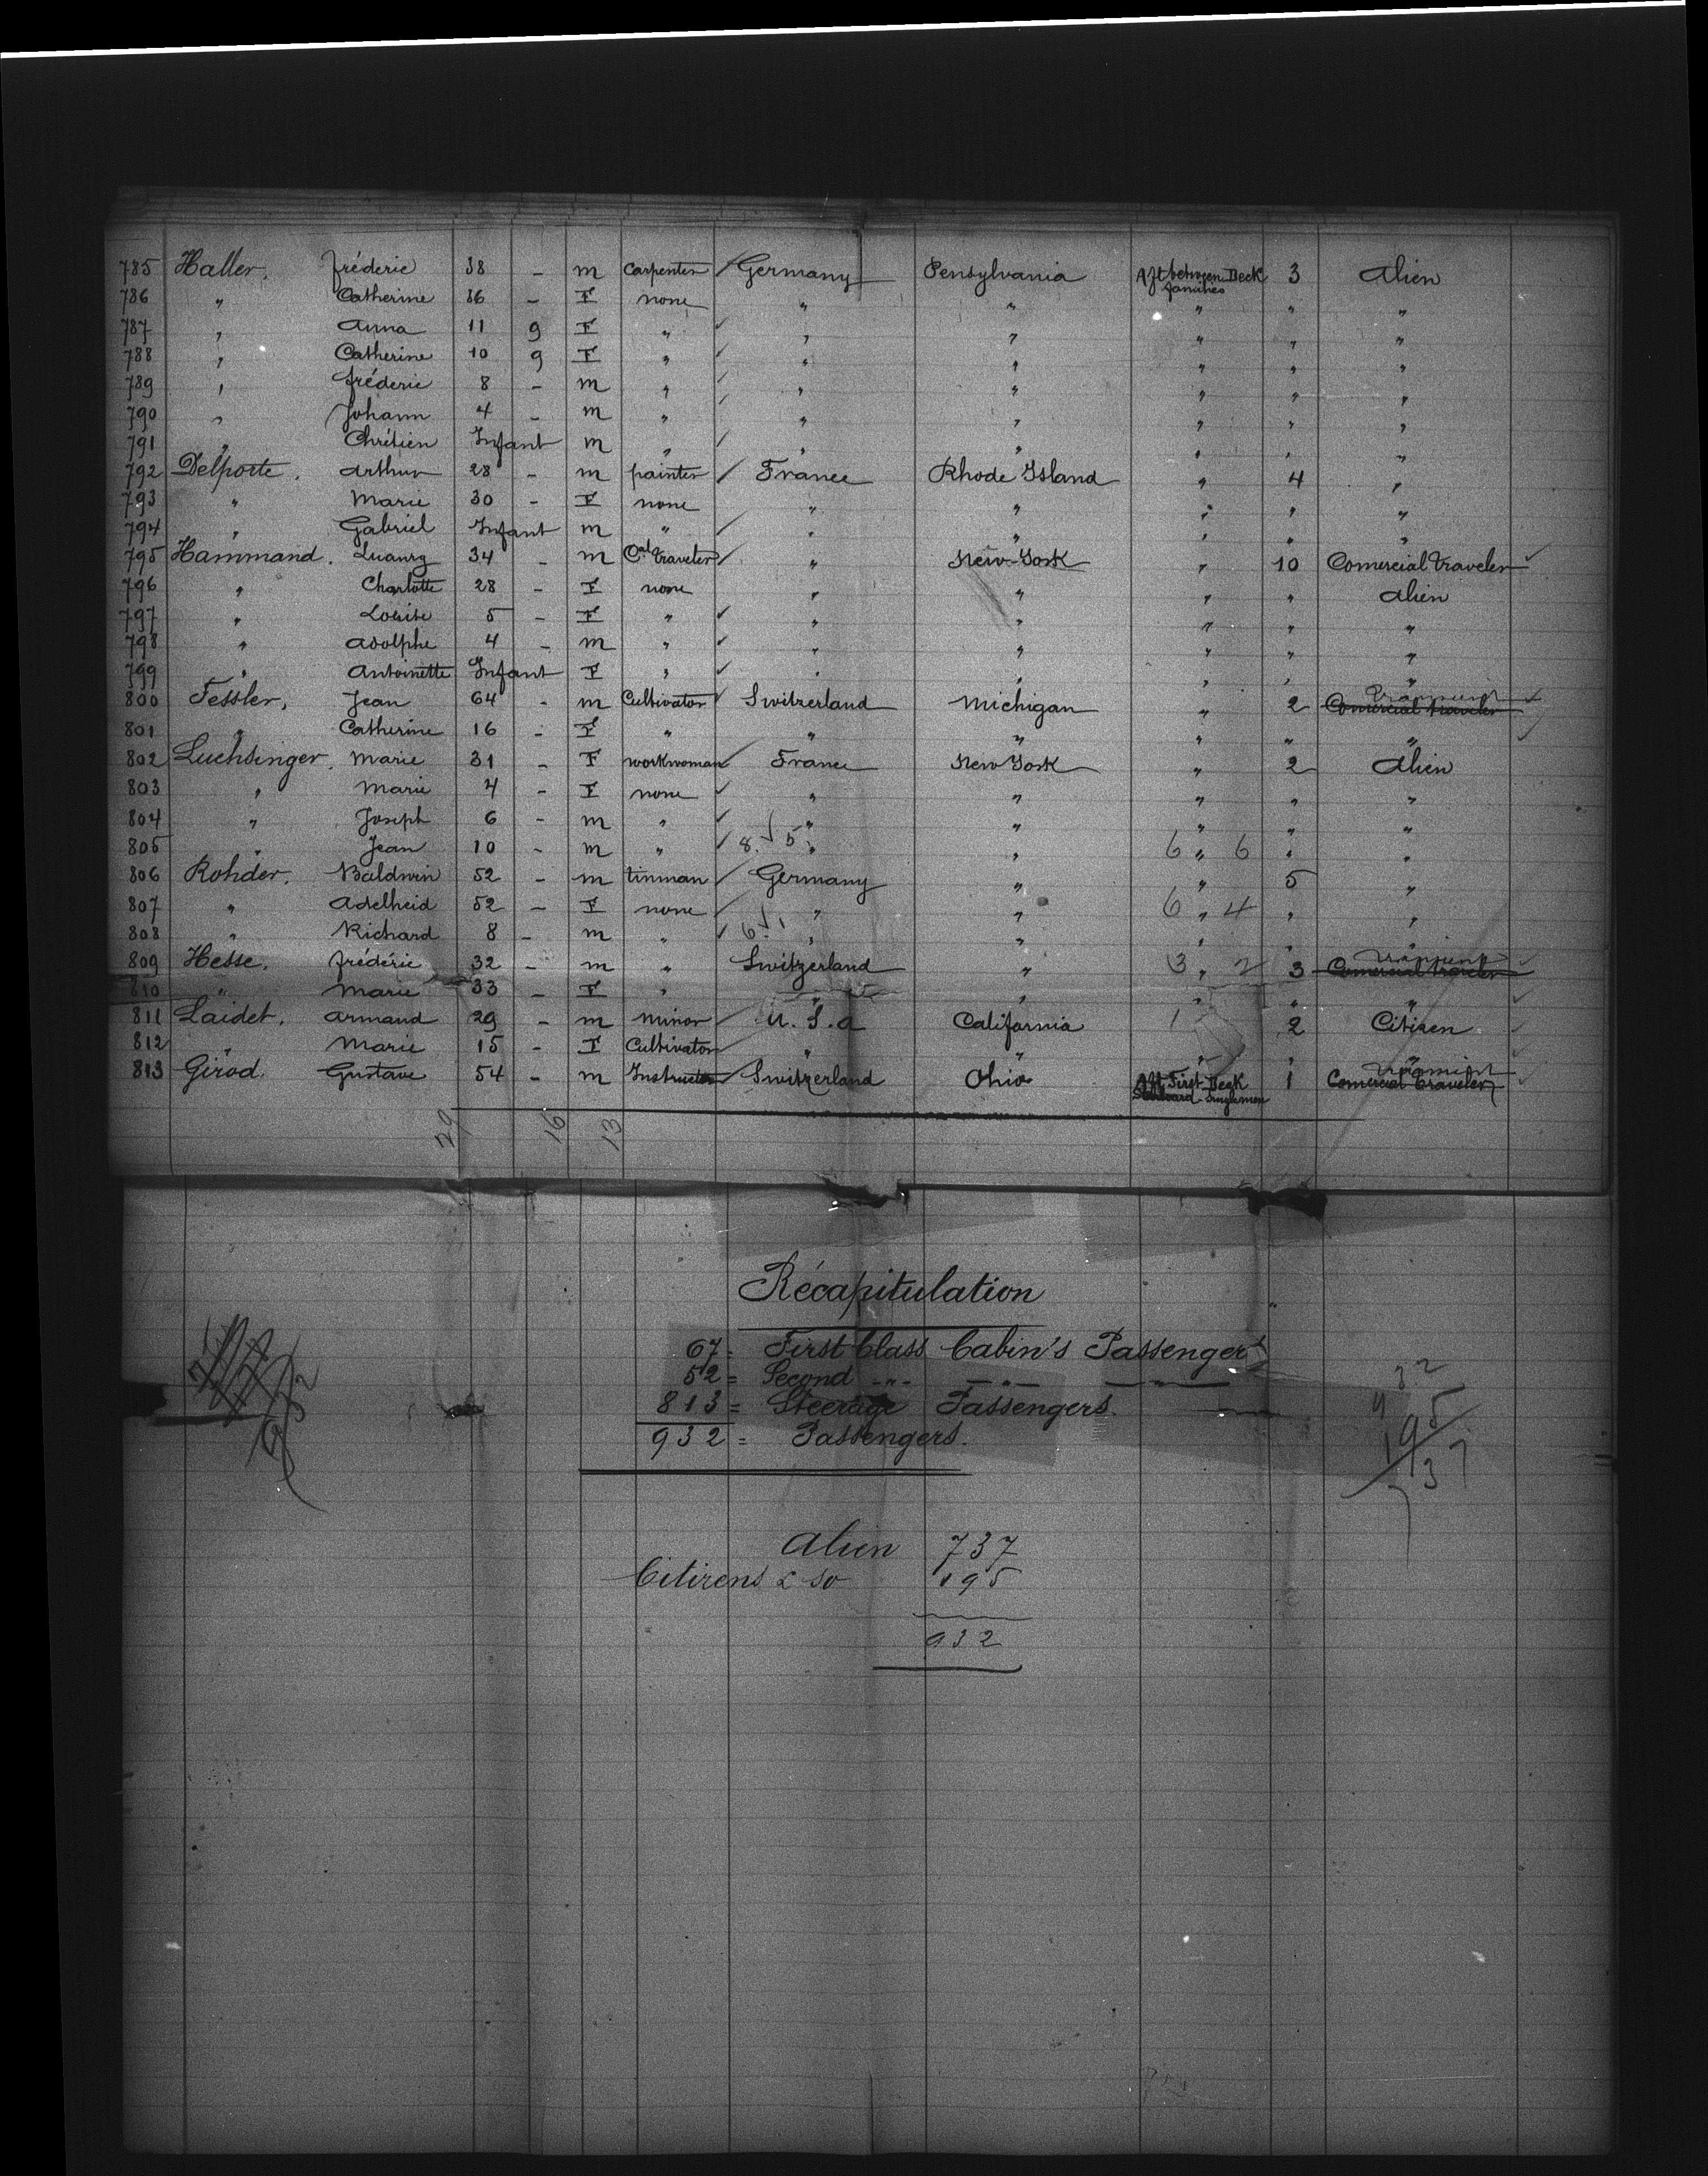 785 Haller. Fréderic 38 - m Carpenter Germany Pensylvania Aft betwen Deck families 3 Alien
786 " Catherine 36 - F none " " " " "
787 " Anna 11 9 F " " " " " "
788 " Catherine 10 9 F " " " " " "
789 " Fréderic 8 - m " " " " " "
790 " Johann 4 - m " " " " " "
791 " Chrétien Infant m " " " " " "
792 Delporte. Arthur 28 - m painter France Rhode Island " 4 "
793 " Marie 30 - F none " " " " "
794 " Gabriel Infant m " " " " " "
795 Hammand. 34 - m Cal traveler " New-York " 10 Comercial traveler
796 " Charlotte 28 - F none " " " " Alien
797 " Louise 5 - F " " " " " "
798 " Adolphe 4 - m " " " " " "
799 " Antoinette Infant F " " " " " "
800 Tessler. Jean 64 - m Cultivator Switzerland Michigan " 2 Comercial traveler
801 " Catherine 16 - F " " " " " "
802 Luchsinger. Marie 31 - F workwoman France New York " 2 Alien
803 " Marie 4 - F none " " " " "
804 " Joseph 6 - m " " " " " "
805 " Jean 10 - m " 8 5 " " 6 " 6 " "
806 Rohder. Baldwin 52 - m tinman Germany " " 5 "
807 " Adelheid 52 - F none " " 6 " 4 " "
808 " Richard 8 - m " " " " " "
809 Hesse. Frédéric 32 - m " Switzerland " 3 " 2 3 Comercial traveler
810 " Marie 33 - F " " " " " "
811 Laidet. Armand 29 - m Minor U.S.a California 1 2 Citizen
812 " Marie 15 - F Cultivator " " " " "
813 Girod. Gustave 54 - m Instructor Switzerland Ohio Aft First Deck Starboard Singlemen 1 Comercial traveler
29 16 13
Récapitulation
67 = First Class Cabin's Passengers
52 = Second -"- -"- -"-
813 = Steerage Passengers.
932 = Passengers.
932
932
195
737
Alien 737
Citizens & so 195
932